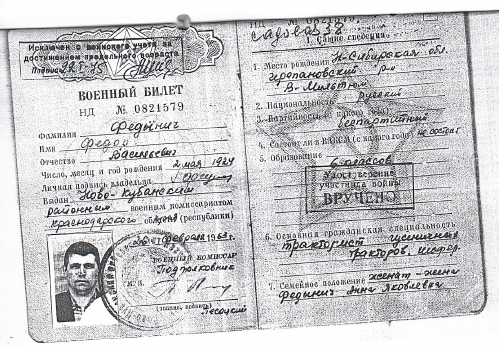 Исключен с воинского учета за
достижением предельного возраста
Подпись
ВОЕННЫЙ БИЛЕТ
НД № 0821579
Фамилия Федынич
Имя Федор
Отчество Васильевич
Число, месяц и год рождения 2 мая 1924
Личная подпись владельца
Выдан Ново-Кубанским
районным военным комиссариатом
Краснодарского края (республики)
февраля 1963 г.
ВОЕННЫЙ КОМИССАР
Подполковник
М. П.
(звание, подпись)
НД №
садовая 38
1. Общие сведения
1. Место рождения Н-Сибирская обл.
Черепановский р-н
2. Национальность Русский
3. Партийность
беспартийный
4. Состоит ли в ВЛКСМ (с какого года) не состоит
5. Образование
6 классов
Удостоверение
участника войны
ВРУЧЕНО
6. Основная гражданская специальность
тракторист гусеничных
тракторов, шофер
7. Семейное положение женат - жена
Федынич Анна Яковлевна